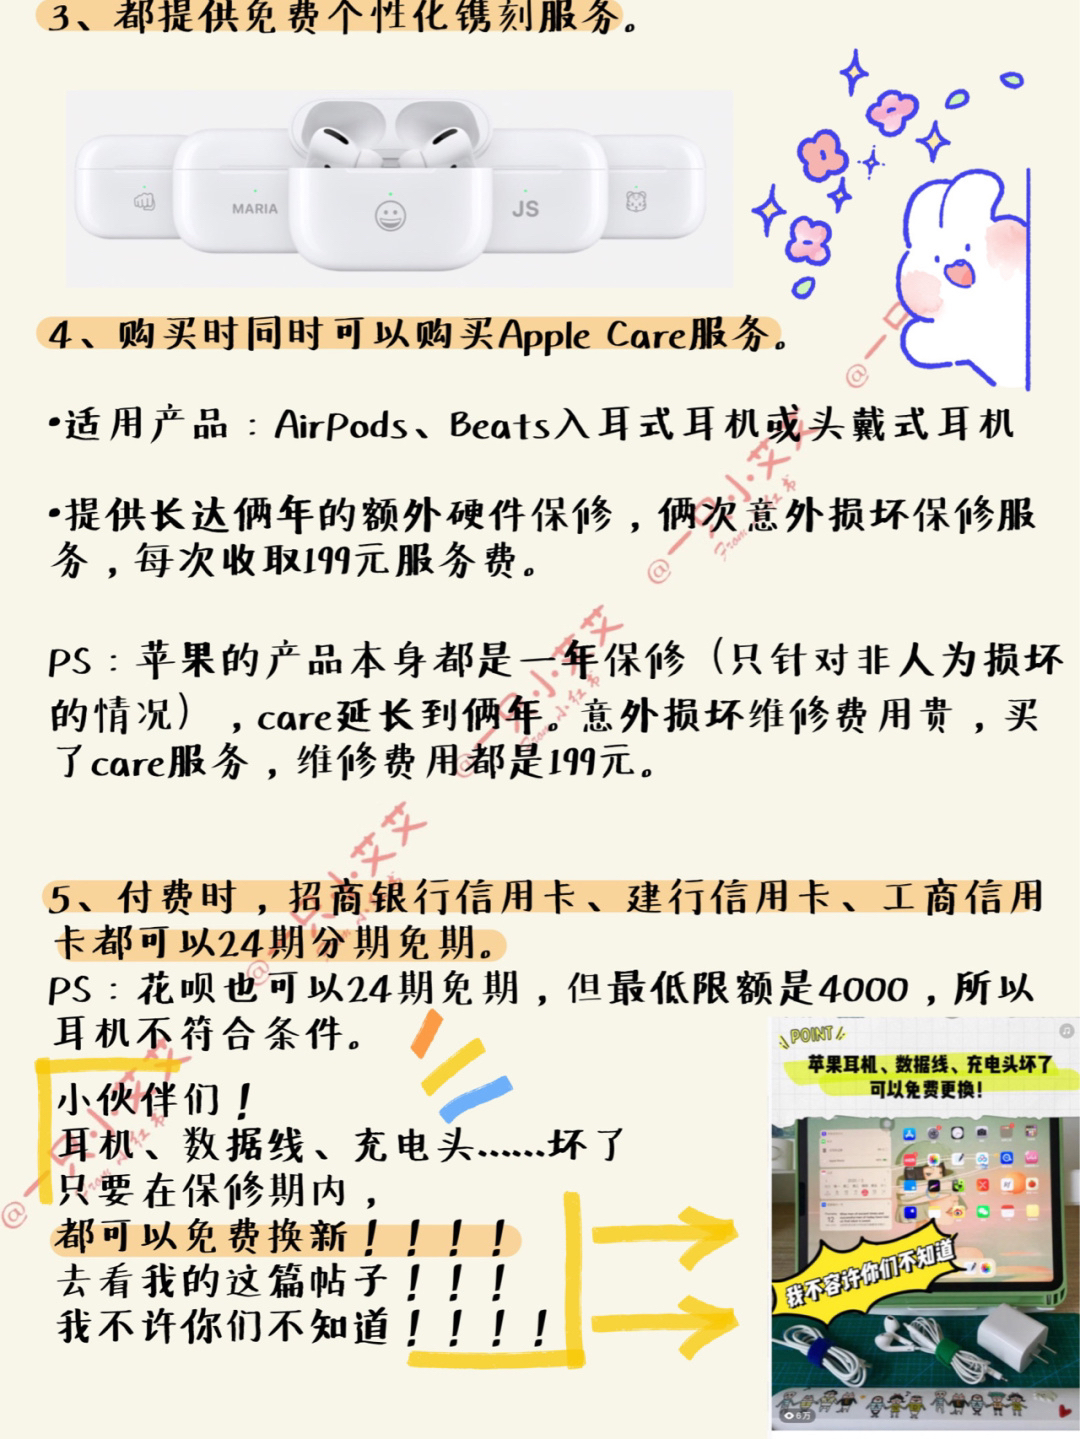 3、都提供免费个性化镌刻服务。
MARIA
JS
4、购买时同时可以购买Apple Care服务。
•适用产品：AirPods、Beats入耳式耳机或头戴式耳机
•提供长达俩年的额外硬件保修，俩次意外损坏保修服
务，每次收取199元服务费。
PS：苹果的产品本身都是一年保修（只针对非人为损坏
的情况），care延长到俩年。意外损坏维修费用贵，买
了care服务，维修费用都是199元。
5、付费时，招商银行信用卡、建行信用卡、工商信用
卡都可以24期分期免期。
PS：花呗也可以24期免期，但最低限额是4000，所以
耳机不符合条件。
小伙伴们！
耳机、数据线、充电头……坏了
只要在保修期内，
都可以免费换新！！！！
去看我的这篇帖子！！！
我不许你们不知道！！！！
POINT
苹果耳机、数据线、充电头坏了
可以免费更换！
我不容许你们不知道
6万
@一只小艾艾
From 小红书
@一只小艾艾
From 小红书
@一只小艾艾
From 小红书
@一只小艾艾
From 小红书
@一只